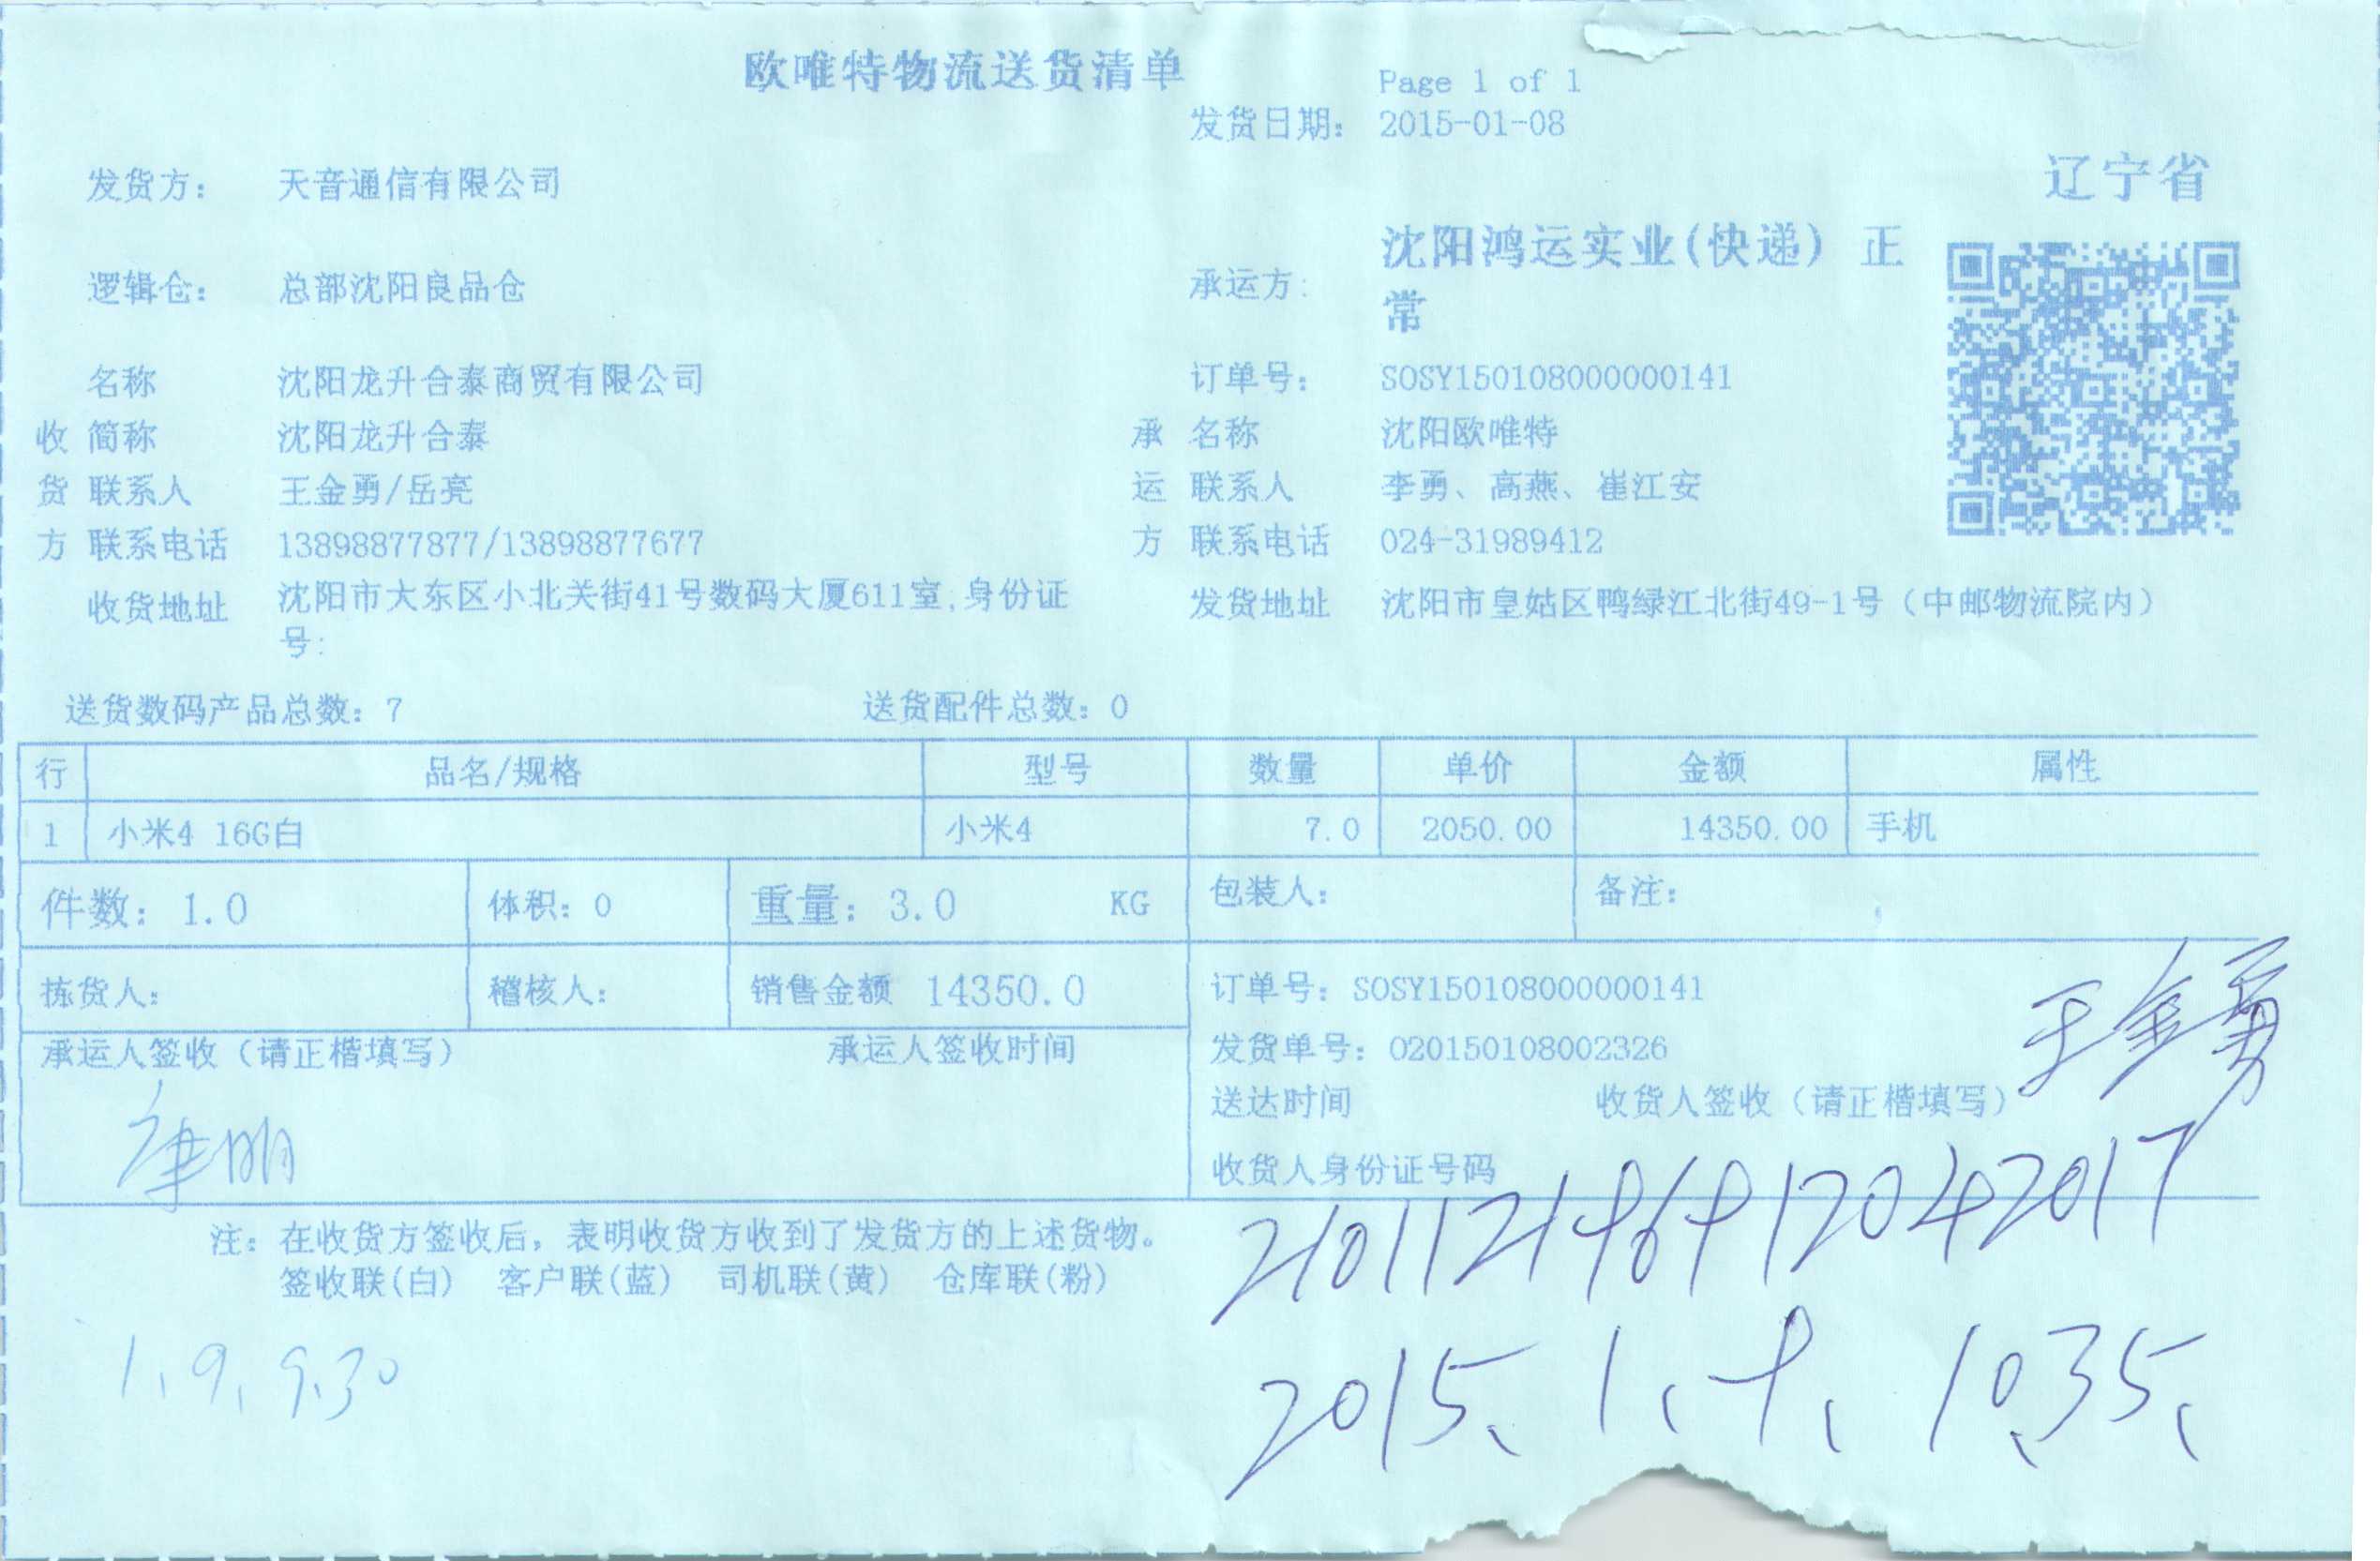 欧唯特物流送货清单
Page 1 of 1
发货日期: 2015-01-08
辽宁省
发货方: 天音通信有限公司
承运方: 沈阳鸿运实业(快递) 正
常
逻辑仓: 总部沈阳良品仓
名称 沈阳龙升合泰商贸有限公司 订单号: SOSY150108000000141
收 简称 沈阳龙升合泰 承 名称 沈阳欧唯特
货 联系人 王金勇/岳亮 运 联系人 李勇、高燕、崔江安
方 联系电话 13898877877/13898877677 方 联系电话 024-31989412
收货地址 沈阳市大东区小北关街41号数码大厦611室,身份证
号:
发货地址 沈阳市皇姑区鸭绿江北街49-1号（中邮物流院内）
送货数码产品总数: 7 送货配件总数: 0
行 品名/规格 型号 数量 单价 金额 属性
1 小米4 16G白 小米4 7.0 2050.00 14350.00 手机
件数: 1.0 体积: 0 重量: 3.0 KG 包装人: 备注:
拣货人: 稽核人: 销售金额 14350.0 订单号: SOSY150108000000141
王金勇
承运人签收（请正楷填写） 承运人签收时间 发货单号: 020150108002326
送达时间 收货人签收（请正楷填写）
收货人身份证号码
210112196912042017
注: 在收货方签收后，表明收货方收到了发货方的上述货物。
签收联(白) 客户联(蓝) 司机联(黄) 仓库联(粉)
1、9、9.30
2015、1、9、10.35、